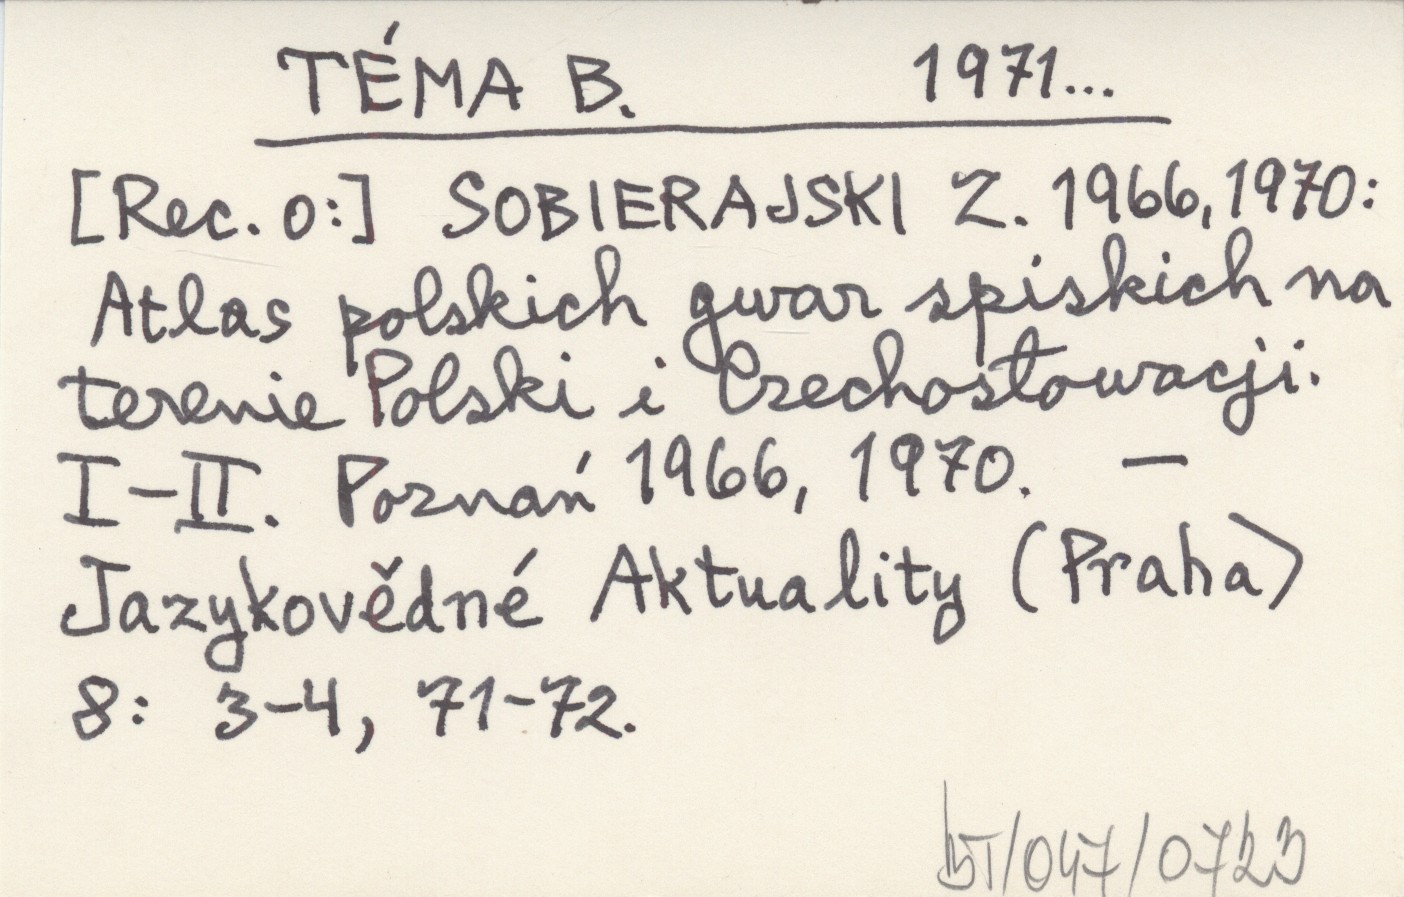 TÉMA B. 1971...
[Rec. o:] SOBIERAJSKI Z. 1966, 1970:
Atlas polskich gwar spiskich na
terenie Polski i Czechosłowacji.
I-II. Poznań 1966, 1970. —
Jazykovědné Aktuality (Praha)
8: 3-4, 71-72.
BT/047/0723